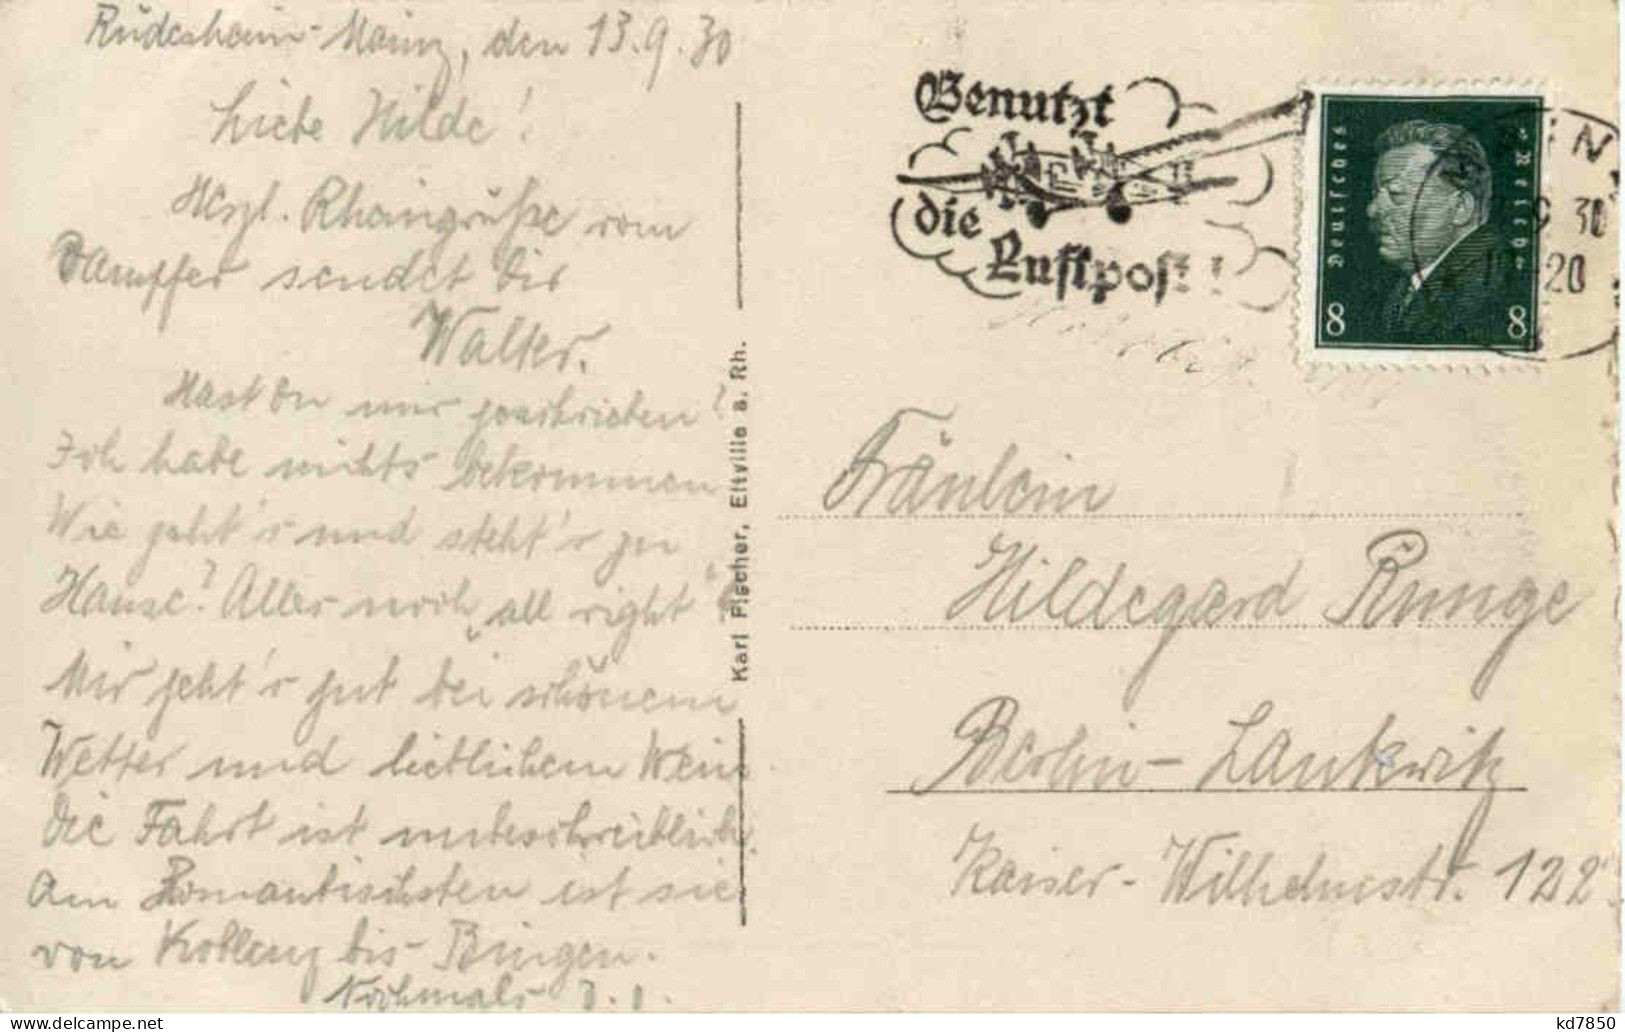 Rüdesheim-Mainz, den 13.9.30
Liebe Hilde!
Herzl. Rheingrüße vom
Dampfer sendet Dir
Walter.
Hast Du mir geschrieben?
Ich habe nichts bekommen
Wie geht's und steht's zu
Hause? Alles noch „all right"?
Mir geht's gut bei schönem
Wetter und lieblichem Wein
Die Fahrt ist unbeschreiblich.
Am Romantischsten ist sie
von Koblenz bis Bingen.
Nochmals D. O.
Karl Fischer, Eltville a. Rh.
Benutzt
die
Luftpost!
Deutsches Reich
8 8
9 30
-20
Fräulein
Hildegard Runge
Berlin-Lankwitz
Kaiser-Wilhelmstr. 122
kd7850